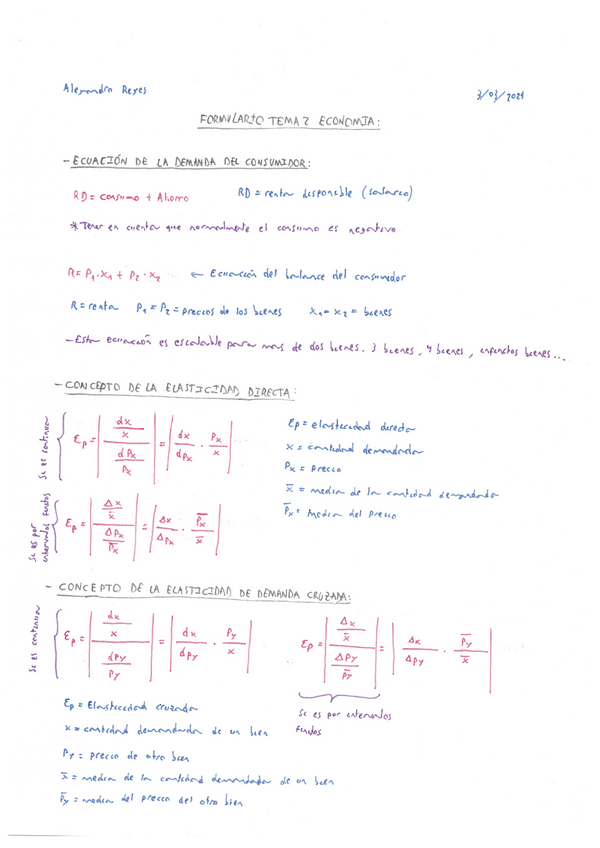 Alejandro Reyes
3/03/2021
FORMULARIO TEMA 2 ECONOMIA:
- ECUACIÓN DE LA DEMANDA DEL CONSUMIDOR:
RD = consumo + Ahorro
RD = renta disponible (salario)
* Tener en cuenta que normalmente el consumo es negativo
R = P₁·x₁ + P₂·x₂ ← Ecuación del balance del consumidor
R = renta P₁ = P₂ = precios de los bienes x₁ = x₂ = bienes
- Esta ecuación es escalable para mas de dos bienes. 3 bienes, 4 bienes, infinitos bienes...
- CONCEPTO DE LA ELASTICIDAD DIRECTA:
Si es continua
Ep = | (dx/x) / (dPx/Px) | = | dx/dPx · Px/x |
Si es por intervalos finitos
Ep = | (Δx/x̄) / (ΔPx/P̄x) | = | Δx/ΔPx · P̄x/x̄ |
Ep = elasticidad directa
x = cantidad demandada
Px = precio
x̄ = media de la cantidad demandada
P̄x = media del precio
- CONCEPTO DE LA ELASTICIDAD DE DEMANDA CRUZADA:
Si es continua
Ep = | (dx/x) / (dPy/Py) | = | dx/dPy · Py/x |
Ep = | (Δx/x̄) / (ΔPy/P̄y) | = | Δx/ΔPy · P̄y/x̄ |
Si es por intervalos
finitos
Ep = Elasticidad cruzada
x = cantidad demandada de un bien
Py = precio de otro bien
x̄ = media de la cantidad demandada de un bien
P̄y = media del precio del otro bien